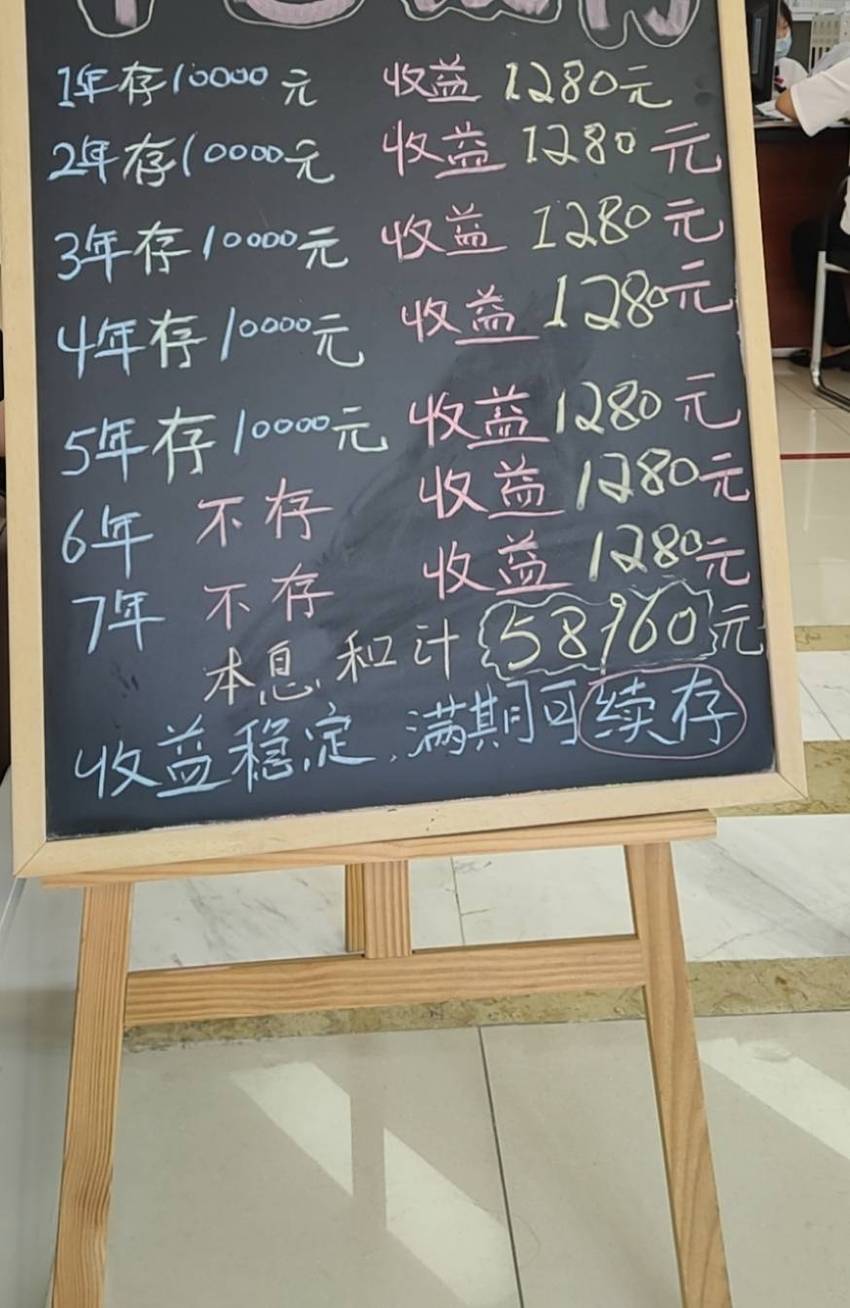 1年存10000元 收益1280元
2年存10000元 收益1280元
3年存10000元 收益1280元
4年存10000元 收益1280元
5年存10000元 收益1280元
6年 不存 收益1280元
7年 不存 收益1280元
本息和计58960元
收益稳定,满期可续存